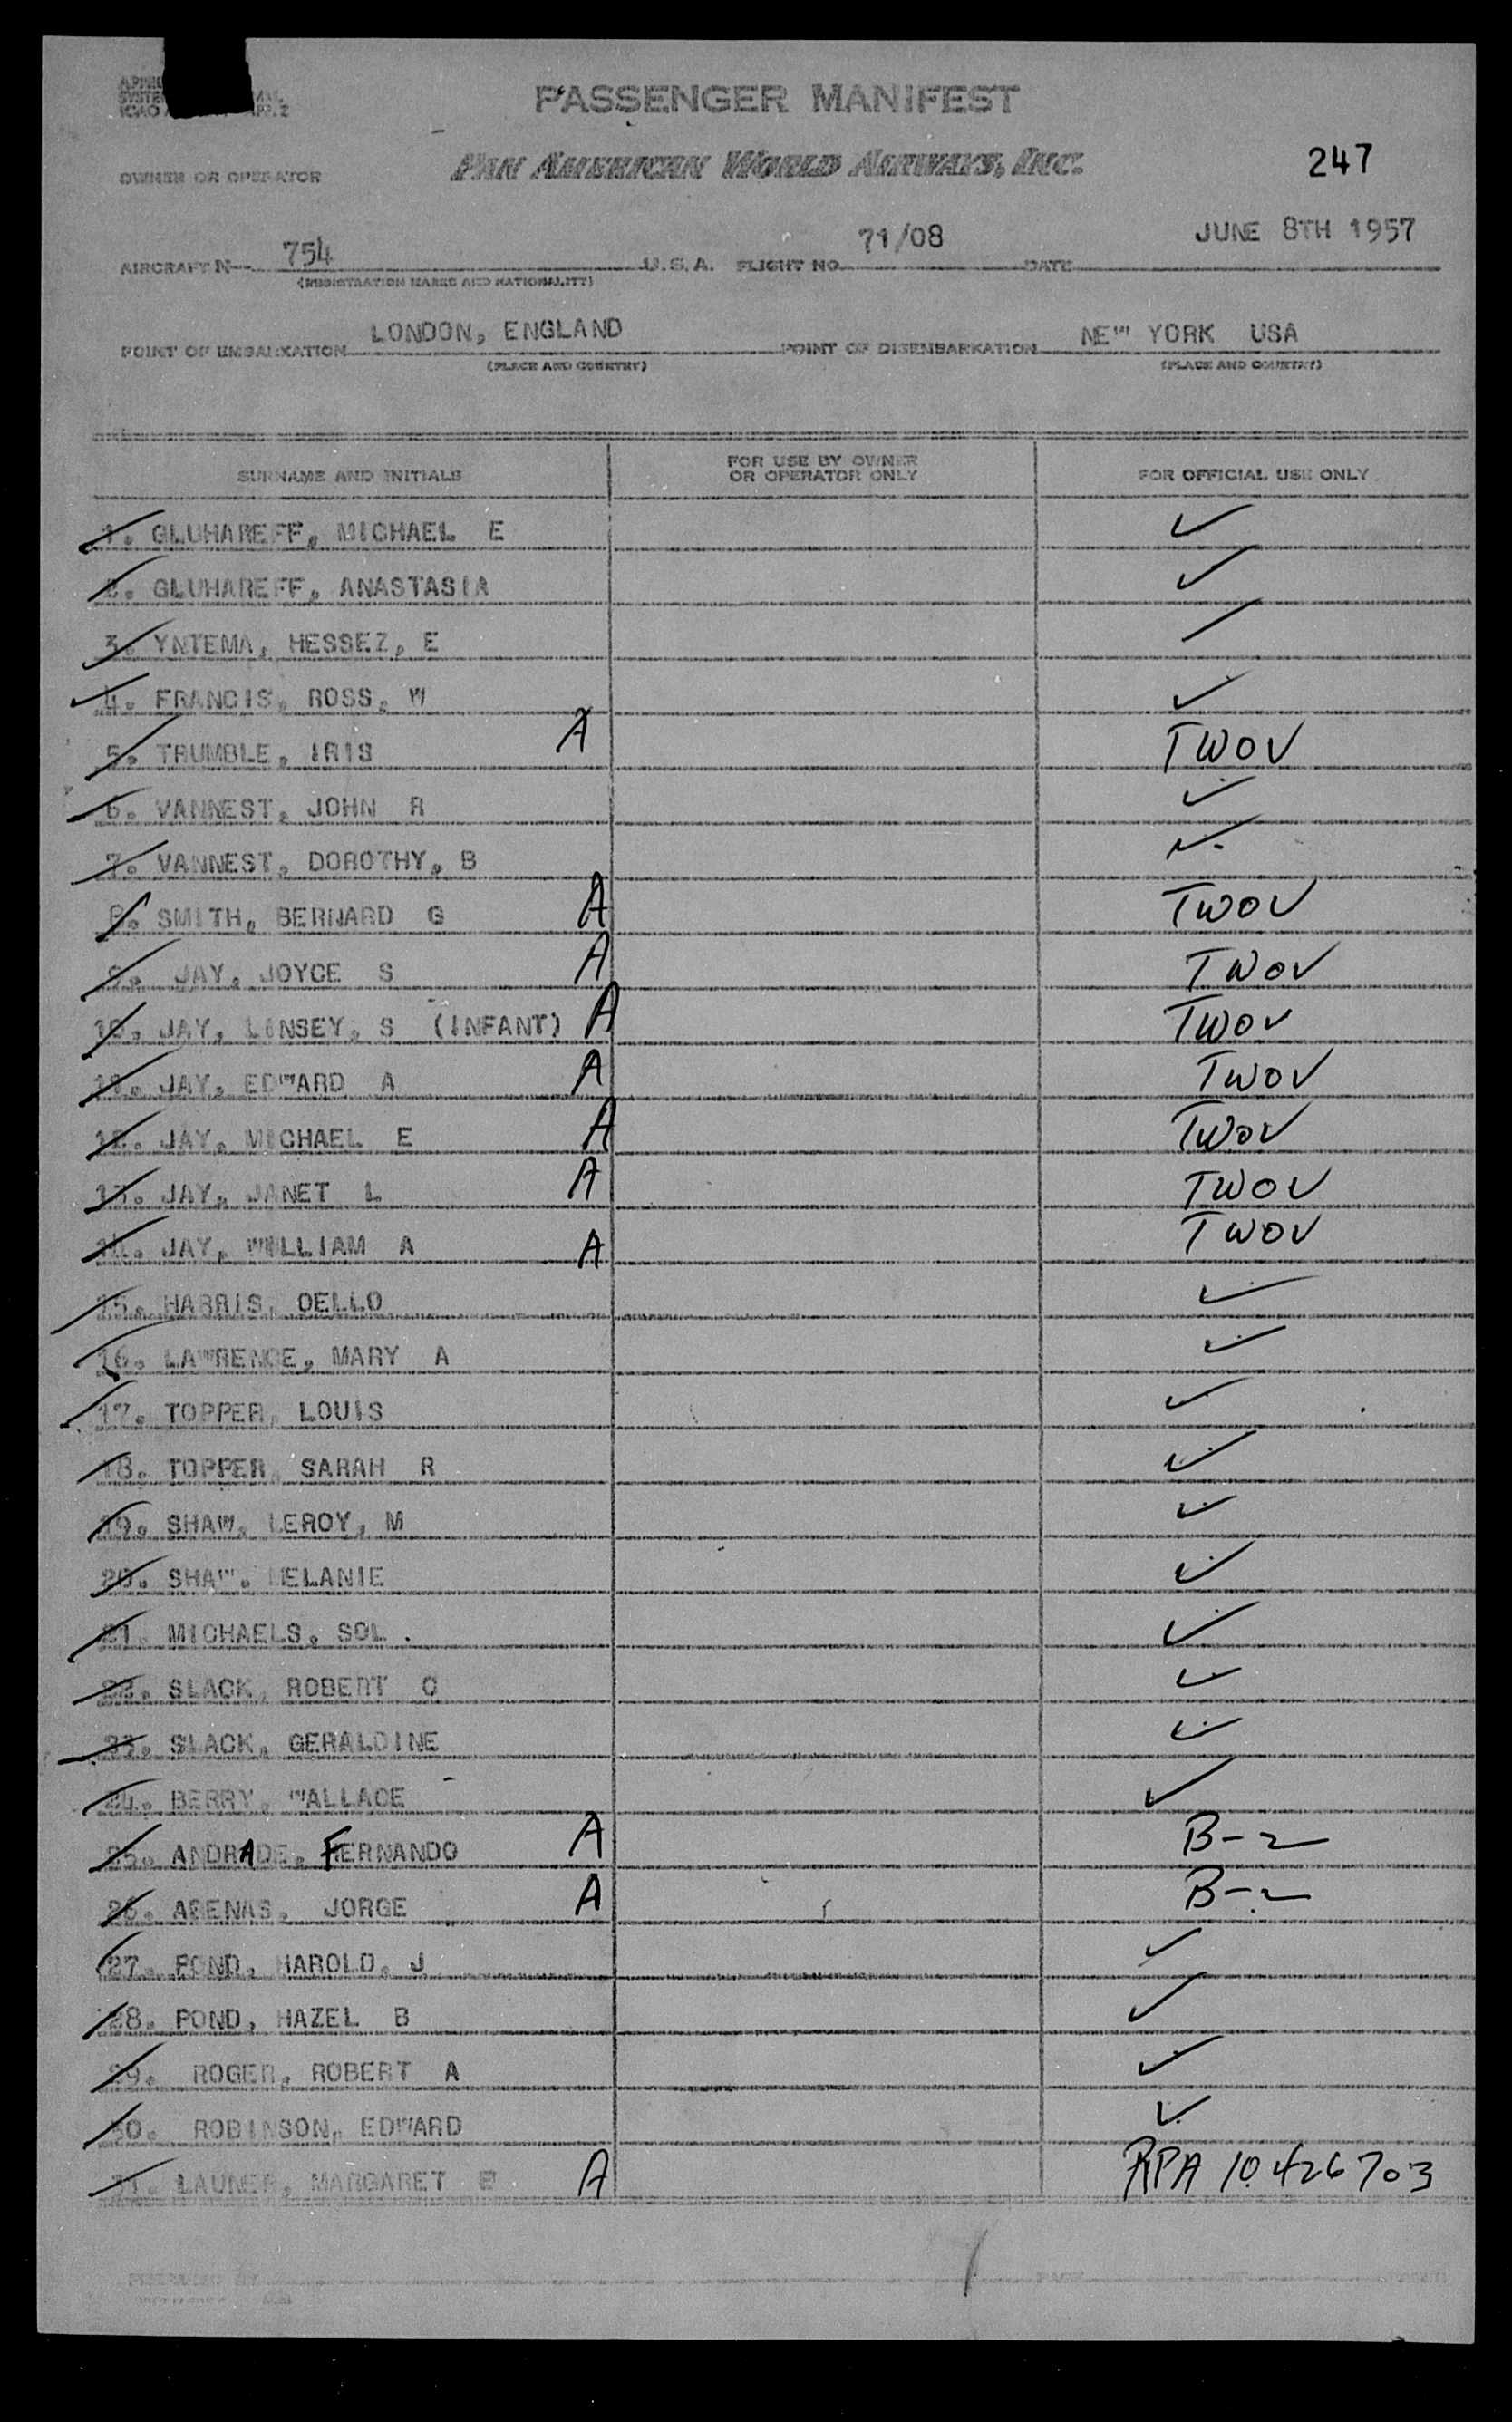 PASSENGER MANIFEST
PAN AMERICAN WORLD AIRWAYS, INC.
247
OWNER OR OPERATOR
AIRCRAFT N— 754 U.S.A. FLIGHT NO. 71/08 DATE JUNE 8TH 1957
(REGISTRATION MARKS AND NATIONALITY)
POINT OF EMBARKATION LONDON, ENGLAND POINT OF DISENBARKATION NEW YORK USA
(PLACE AND COUNTRY) (PLACE AND COUNTRY)
SURNAME AND INITIALS FOR USE BY OWNER OR OPERATOR ONLY FOR OFFICIAL USE ONLY
1. GLUHAREFF, MICHAEL E ✓
2. GLUHAREFF, ANASTASIA ✓
3. YNTEMA, HESSEZ, E
4. FRANCIS, ROSS, W ✓
5. TRUMBLE, IRIS A TWOV
6. VANNEST, JOHN R ✓
7. VANNEST, DOROTHY, B ✓
8. SMITH, BERNARD G A TWOV
9. JAY, JOYCE S A TWOV
10. JAY, LINSEY, S (INFANT) A TWOV
11. JAY, EDWARD A A TWOV
12. JAY, MICHAEL E A TWOV
13. JAY, JANET L A TWOV
14. JAY, WILLIAM A A TWOV
15. HARRIS, OELLO ✓
16. LAWRENCE, MARY A ✓
17. TOPPER, LOUIS ✓
18. TOPPER, SARAH R ✓
19. SHAW, LEROY, M ✓
20. SHAW, MELANIE ✓
21. MICHAELS, SOL . ✓
22. SLACK, ROBERT O ✓
23. SLACK, GERALDINE ✓
24. BERRY, WALLACE ✓
25. ANDRADE, FERNANDO A B-2
26. ARENAS, JORGE A B-2
27. POND, HAROLD, J ✓
28. POND, HAZEL B ✓
29. ROGER, ROBERT A ✓
30. ROBINSON, EDWARD ✓
31. LAUNER, MARGARET E A RPA 10426703